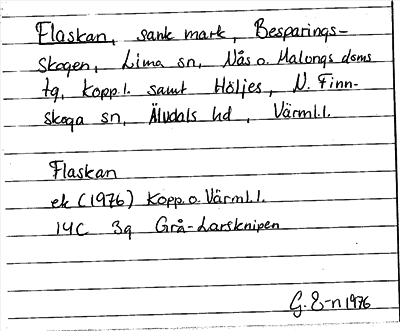 Flaskan, sank mark, Besparings-
skogen, Lima sn, Nås o. Malungs doms
tg, Kopp.l. samt Höljes, N. Finn-
skoga sn, Älvdals hd, Värml.l.
Flaskan
ek (1976) Kopp. o. Värml.l.
14C 3g Grå-Larsknipen
G. E-n 1976